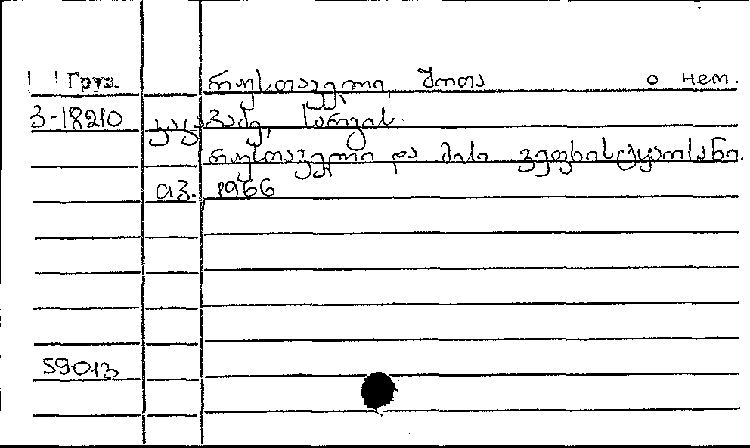 Груз. რუსთაველი, შოთა о нем.
3-18210 კაკაბაძე, სარგის.
რუსთაველი და მისი ვეფხისტყაოსანი.
თბ. 1966
59013